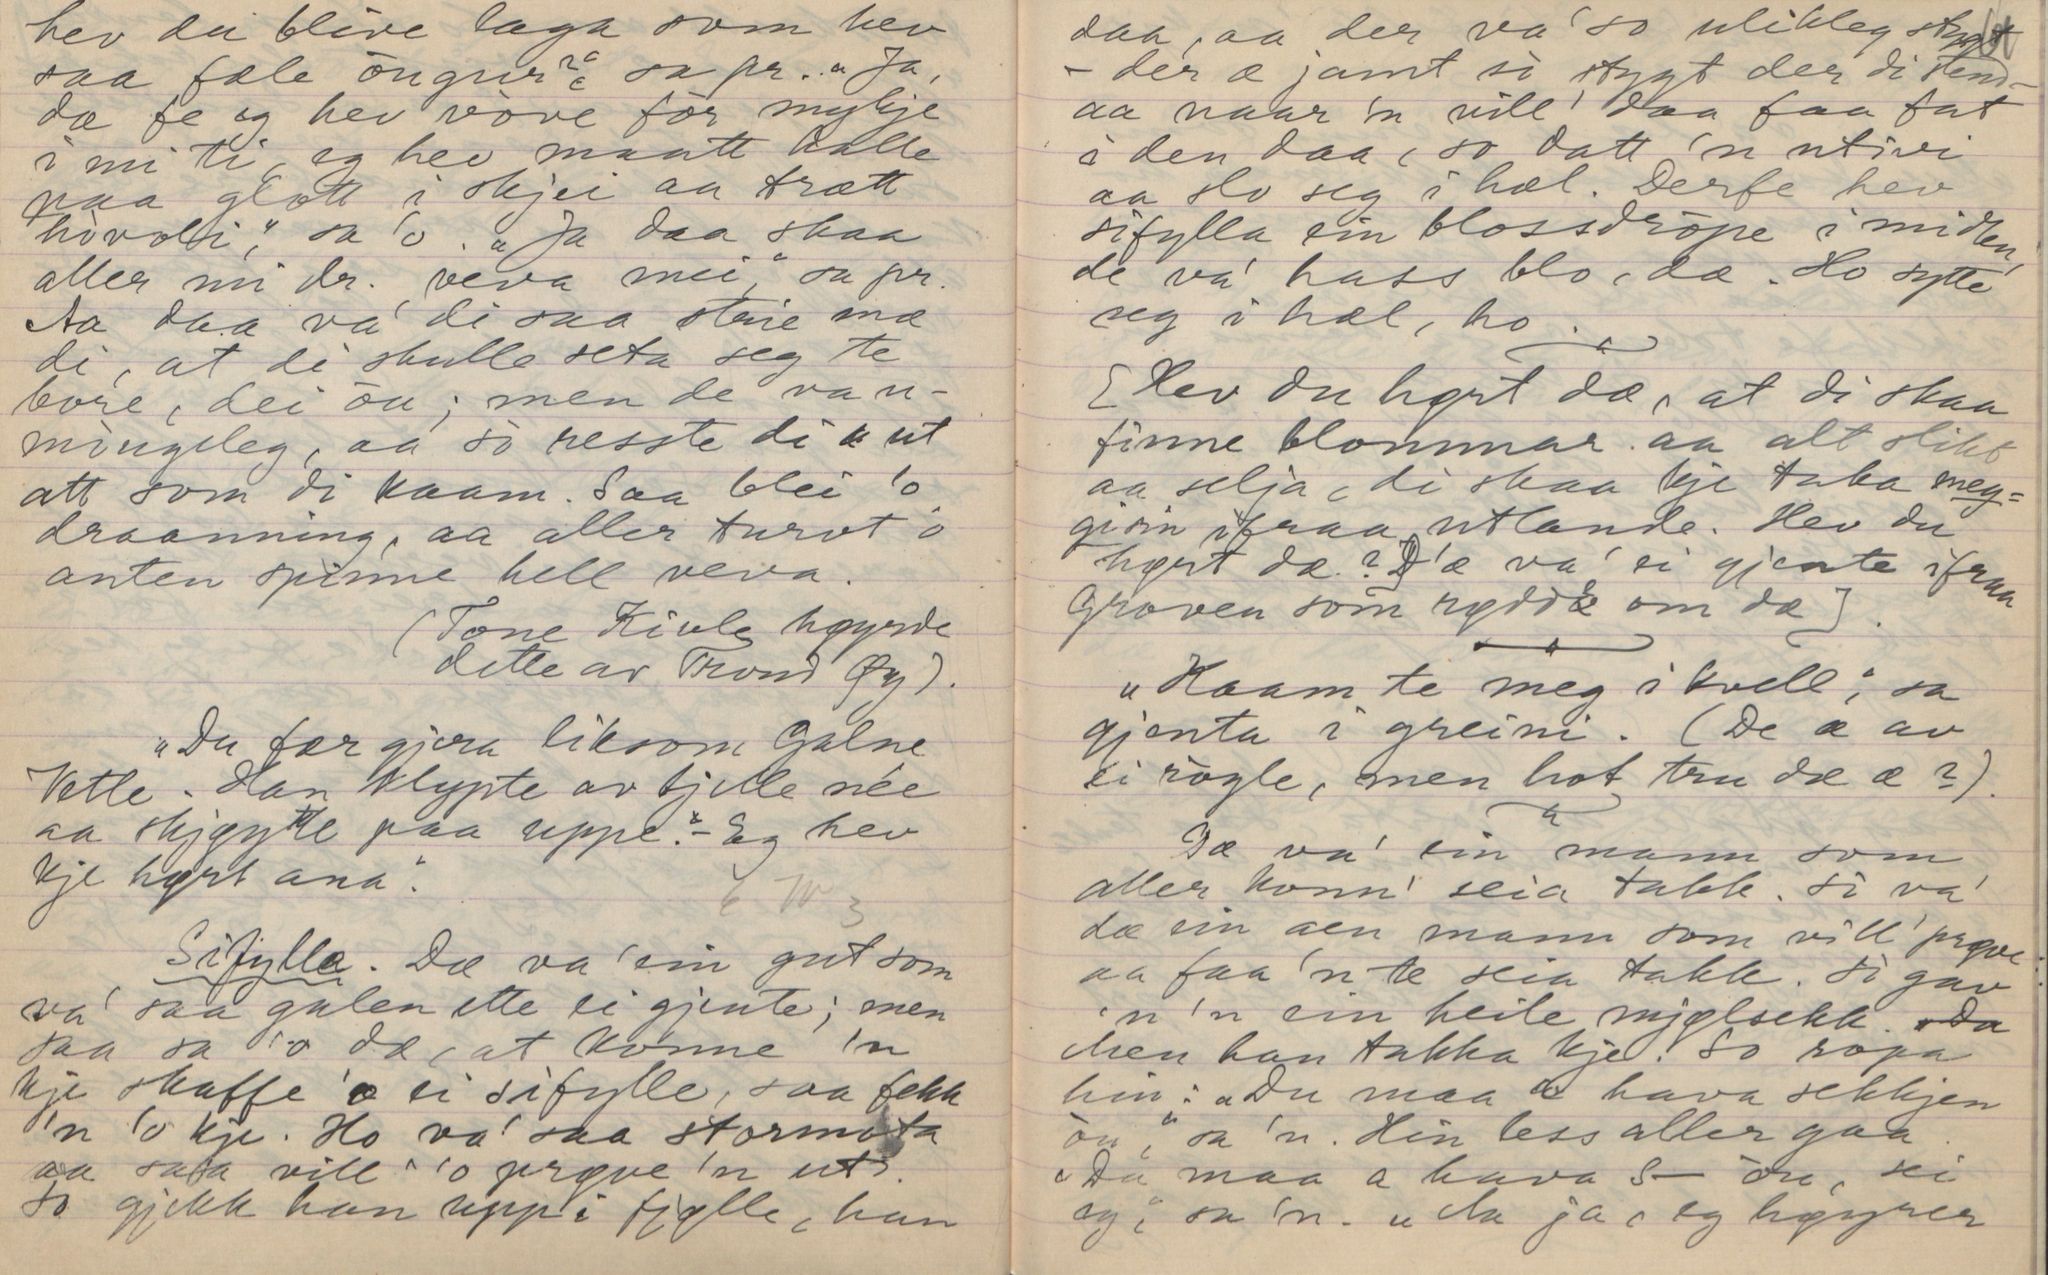 hev du blive laga som hev
saa fæle öugur?" sa pr. "Ja,
dæ fe eg hev vòve før mykje
i mi ti, eg hev maatt halle
paa glott i skjei aa trætt
hòvolsi," sa 'o. "Ja daa skaa
aller mi dr. veva mei," sa pr.
Aa daa va' di saa støie mæ
di, at di skulle seta seg te
bore, dei öu; men de va u-
mòugeleg, aa sò resste di ut
att som di kaam. Saa blei 'o
draanning, aa aller turvt 'o
anten spinne hell veva.
(Tone Kivle høyrde
dette av Trond Øy).
"Du fær gjera liksom Galne
Vetle. Han klypte av tjelle née
aa skjøytte paa uppe." – Eg hev
kje høyrt ana".
Sifylla. Dæ va' ein gut som
va' saa galen ette ei gjente; men
saa sa 'o dæ, at konne 'n
kje skaffe 'o ei sifylle, saa fekk
'n 'o kje. Ho va' saa stormota
aa saa vill' 'o prøve 'n ut.
So gjekk han upp i fjølle, han
daa, aa der va' so ulikleg stygt
– der æ jamt sò stygt der di stend –
aa naar 'n vill' daa faa fat
i den daa, so datt 'n utivi
aa slo seg i hæl. Derfe hev
sifylla ein blossdròpe i midten,
de va' hass blo, dæ. Ho sytte
seg i hæl, ho.
[Hev du høyrt dæ, at di skaa
finne blommar aa alt slikt
aa selja, di skaa kje taka meg-
gisin ifraa utlande. Hev du
høyrt dæ? D'æ va' ei gjente ifraa
Grøven som røddæ om dæ].
"Kaam te meg i kvell", sa
gjenta i greini. (De æ av
ei rògle, men hot tru dæ æ?).
Dæ va' ein mann som
aller konn' seia takk. Sò va'
dæ ein aen mann som vill' prøve
aa faa 'n te seia takk. Sò gav
'n 'n ein heile mjølsekk.
Men han takka kje. So ropa
hin: "Du maa hava sekkjen
öu," sa 'n. Hin less aller gaa.
"Du maa a hava S– öu, sei
eg," sa 'n. "Aa ja, eg høyrer